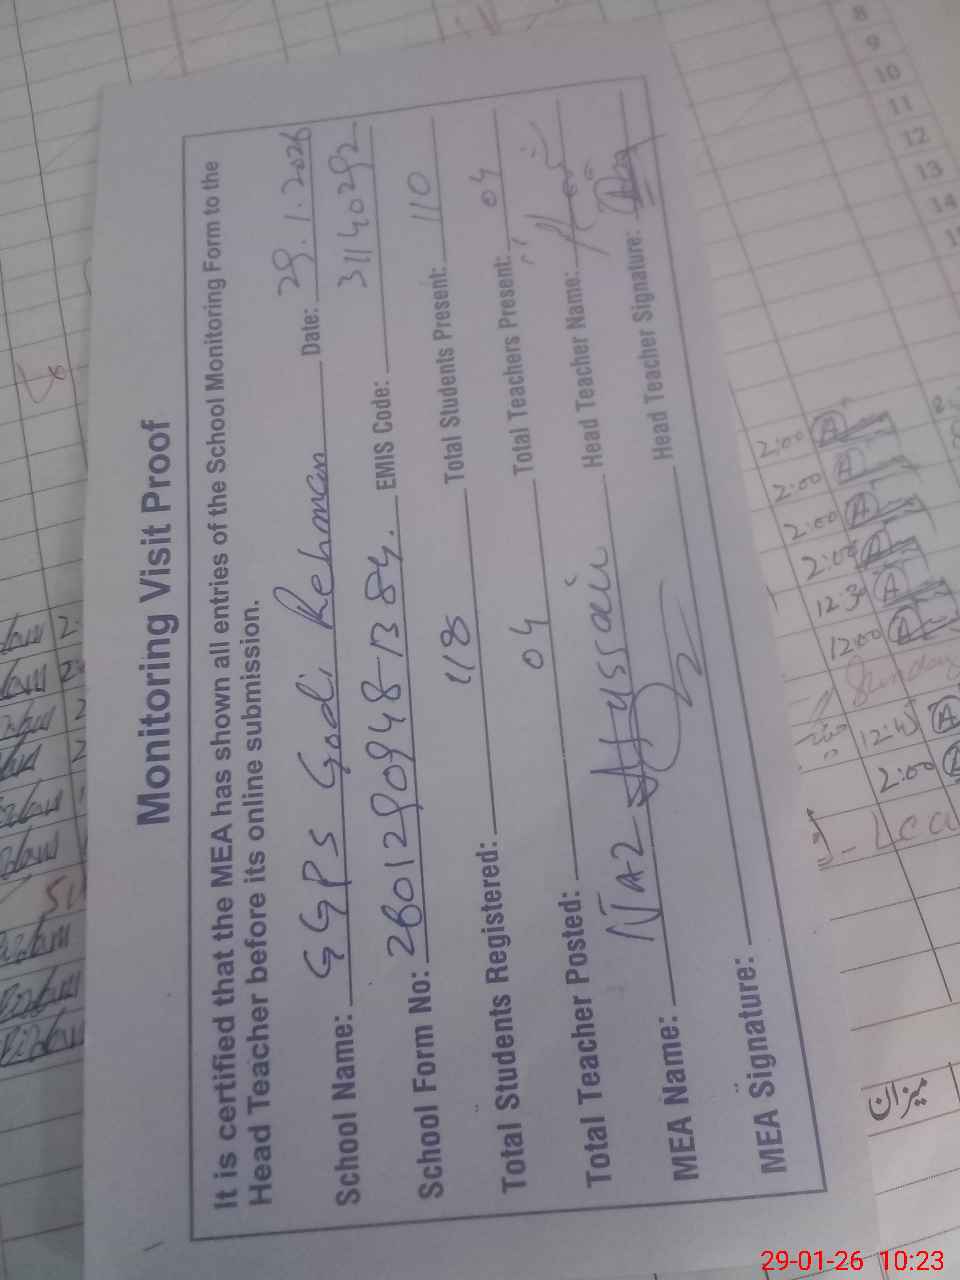 Monitoring Visit Proof
It is certified that the MEA has shown all entries of the School Monitoring Form to the
Head Teacher before its online submission.
School Name: GGPS Godi Rehman Date: 29.1.2026
School Form No: 2601290948-1384. EMIS Code: 31140292
Total Students Registered: 118 Total Students Present: 110
Total Teacher Posted: 04 Total Teachers Present: 04
MEA Name: Niaz Hussain Head Teacher Name:
MEA Signature: Head Teacher Signature:
8
9
10
11
12
13
14
2:00 A
2:00 A
2:00 A
2:00 A
12:30 A
12:00 A
Sunday
12:45 A
2:00 A
میزان
29-01-26 10:23